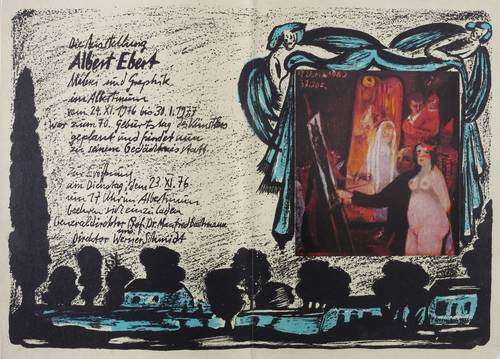 Die Ausstellung
Albert Ebert
Malerei und Graphik
im Albertinum
vom 24. XI. 1976 bis 30. I. 1977
war zum 70. Geburtstag des Künstlers
geplant und findet nun
zu seinem Gedächtnis statt.
Zur Eröffnung
am Dienstag, dem 23. XI. 76
um 17 Uhr im Albertinum
beehren sich einzuladen
Generaldirektor Prof. Dr. Manfred Bachmann
und
Direktor Werner Schmidt